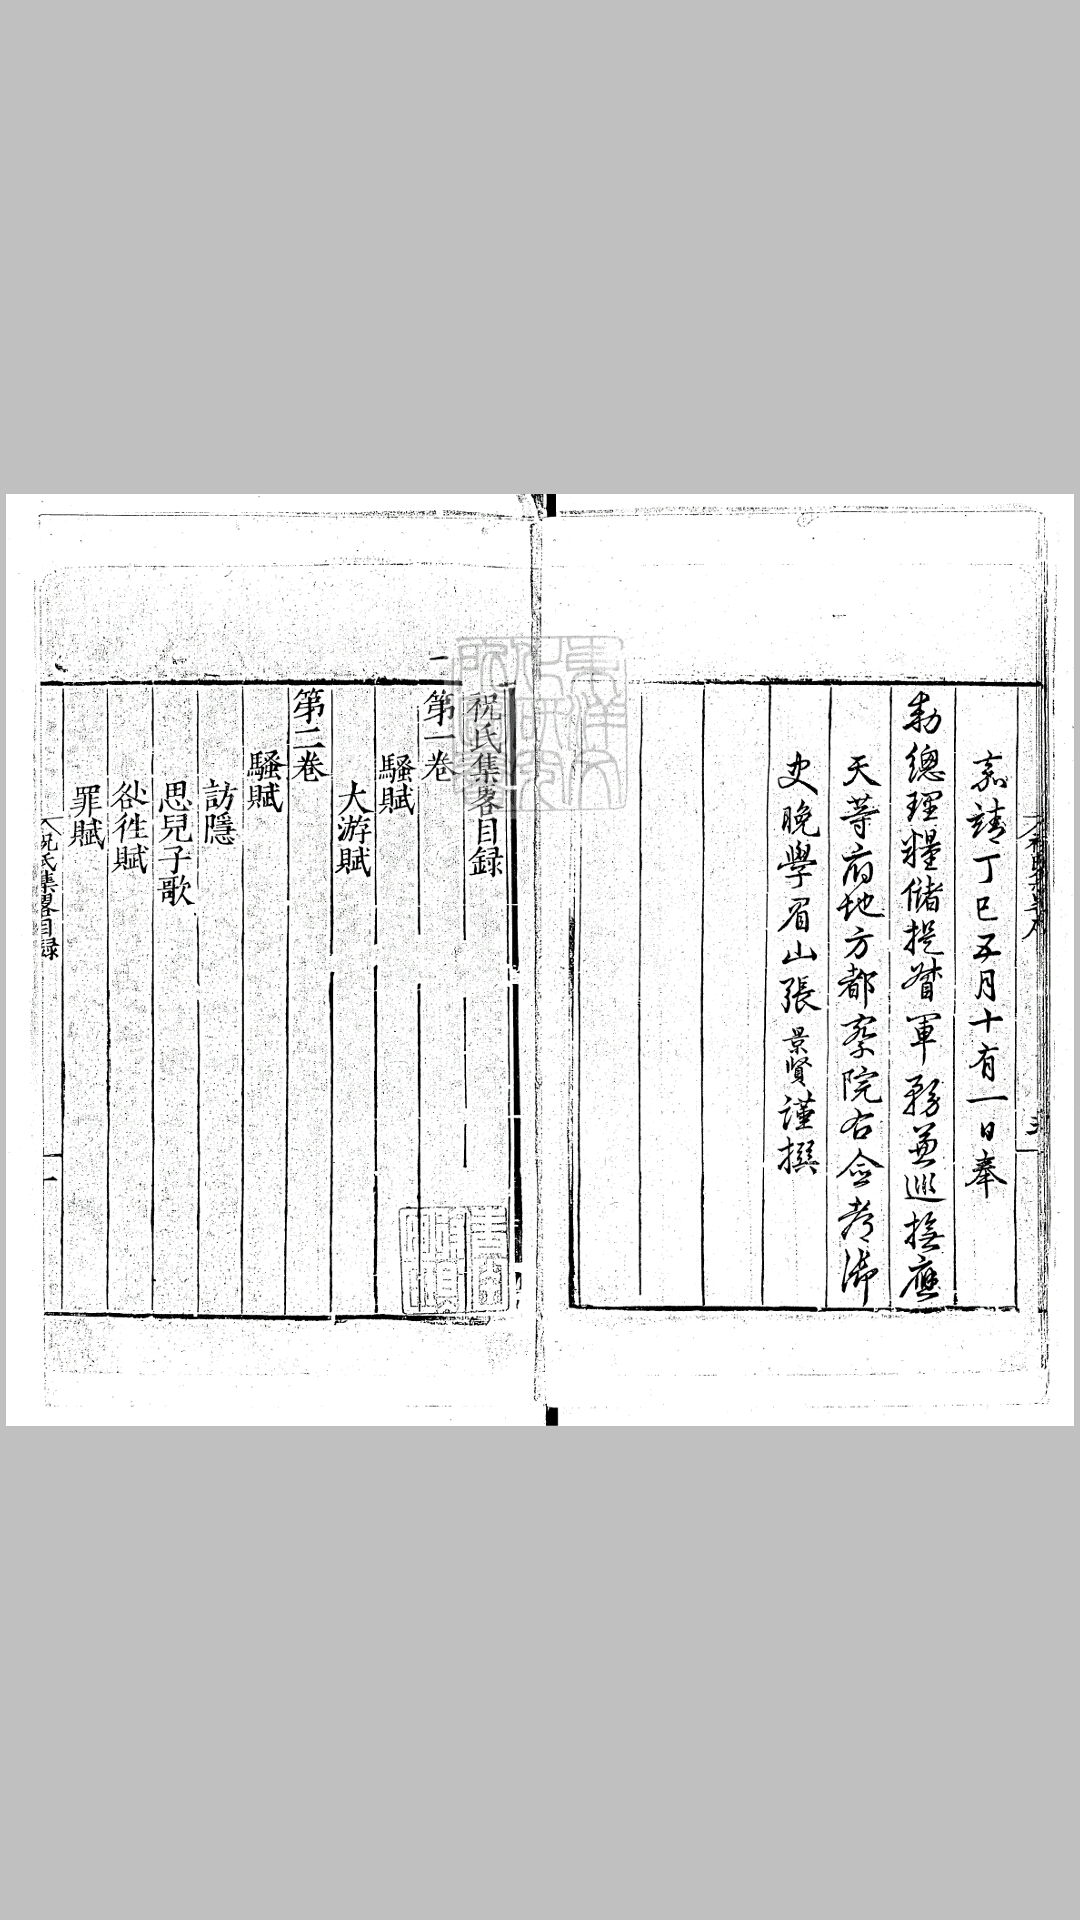 嘉靖丁巳五月十有一日奉
勑總理糧儲提督軍務兼巡撫應
天等府地方都察院右僉都御
史晚學眉山張景賢謹撰
祝氏集畧目録
第一卷
騷賦
大游賦
第二卷
騷賦
訪隱
思兒子歌
罪賦
祝氏集畧目録
一